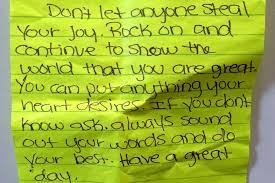 Don't let anyone steal
your joy. Rock on and
continue to show the
world that you are great.
You can put anything your
heart desires. If you don't
know ask. always sound
out your words and do
your best. Have a great
day.